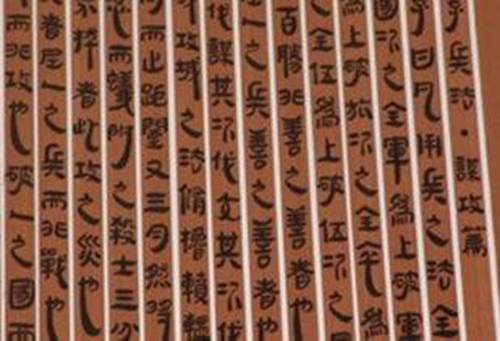 子兵法·謀攻篇
子曰凡用兵之法全
國次之全軍為上破軍
為上破旅次之全卒為
之全伍為上破伍次之
百勝非善之善者也
人之兵善之善者也
伐謀其次伐交其次
攻城之法脩櫓轒轀
而止距闉又三月然後
而蟻附之殺士三分
不拔者此攻之災也
者屈人之兵而非戰也
而非攻也破人之國而